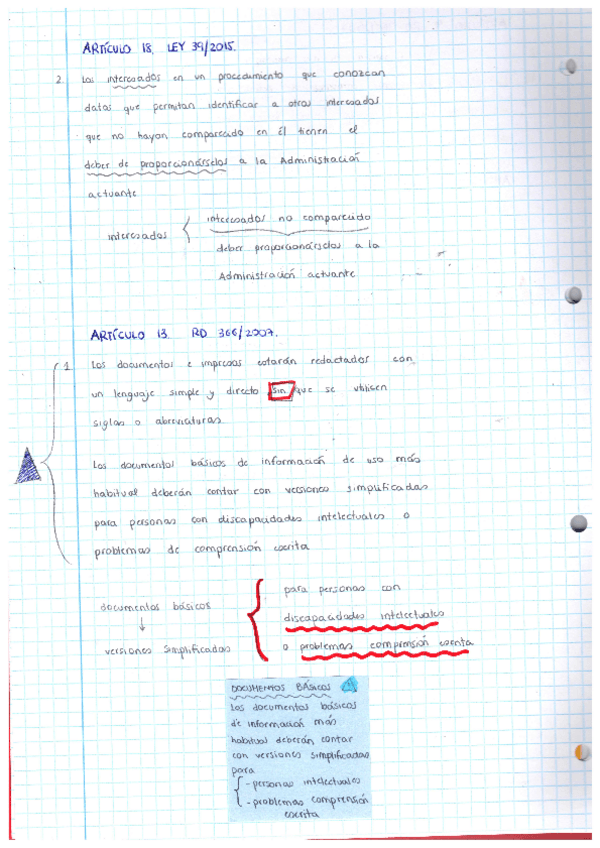 ARTÍCULO 18. LEY 39/2015.
2. Los interesados en un procedimiento que conozcan
datos que permitan identificar a otros interesados
que no hayan comparecido en él tienen el
deber de proporcionárselos a la Administración
actuante
interesados { interesados no comparecido
deber proporcionárselos a la
Administración actuante
ARTÍCULO 13. RD 366/2007.
1 Los documentos e impresos estarán redactados con
un lenguaje simple y directo sin que se utilicen
siglas o abreviaturas
Los documentos básicos de información de uso más
habitual deberán contar con versiones simplificadas
para personas con discapacidades intelectuales o
problemas de comprensión escrita
documentos básicos
↓
versiones simplificadas
para personas con
discapacidades intelectuales
o problemas comprensión escrita
DOCUMENTOS BÁSICOS
Los documentos básicos
de información más
habitual deberán contar
con versiones simplificadas
para
- personas intelectuales
- problemas comprensión
escrita